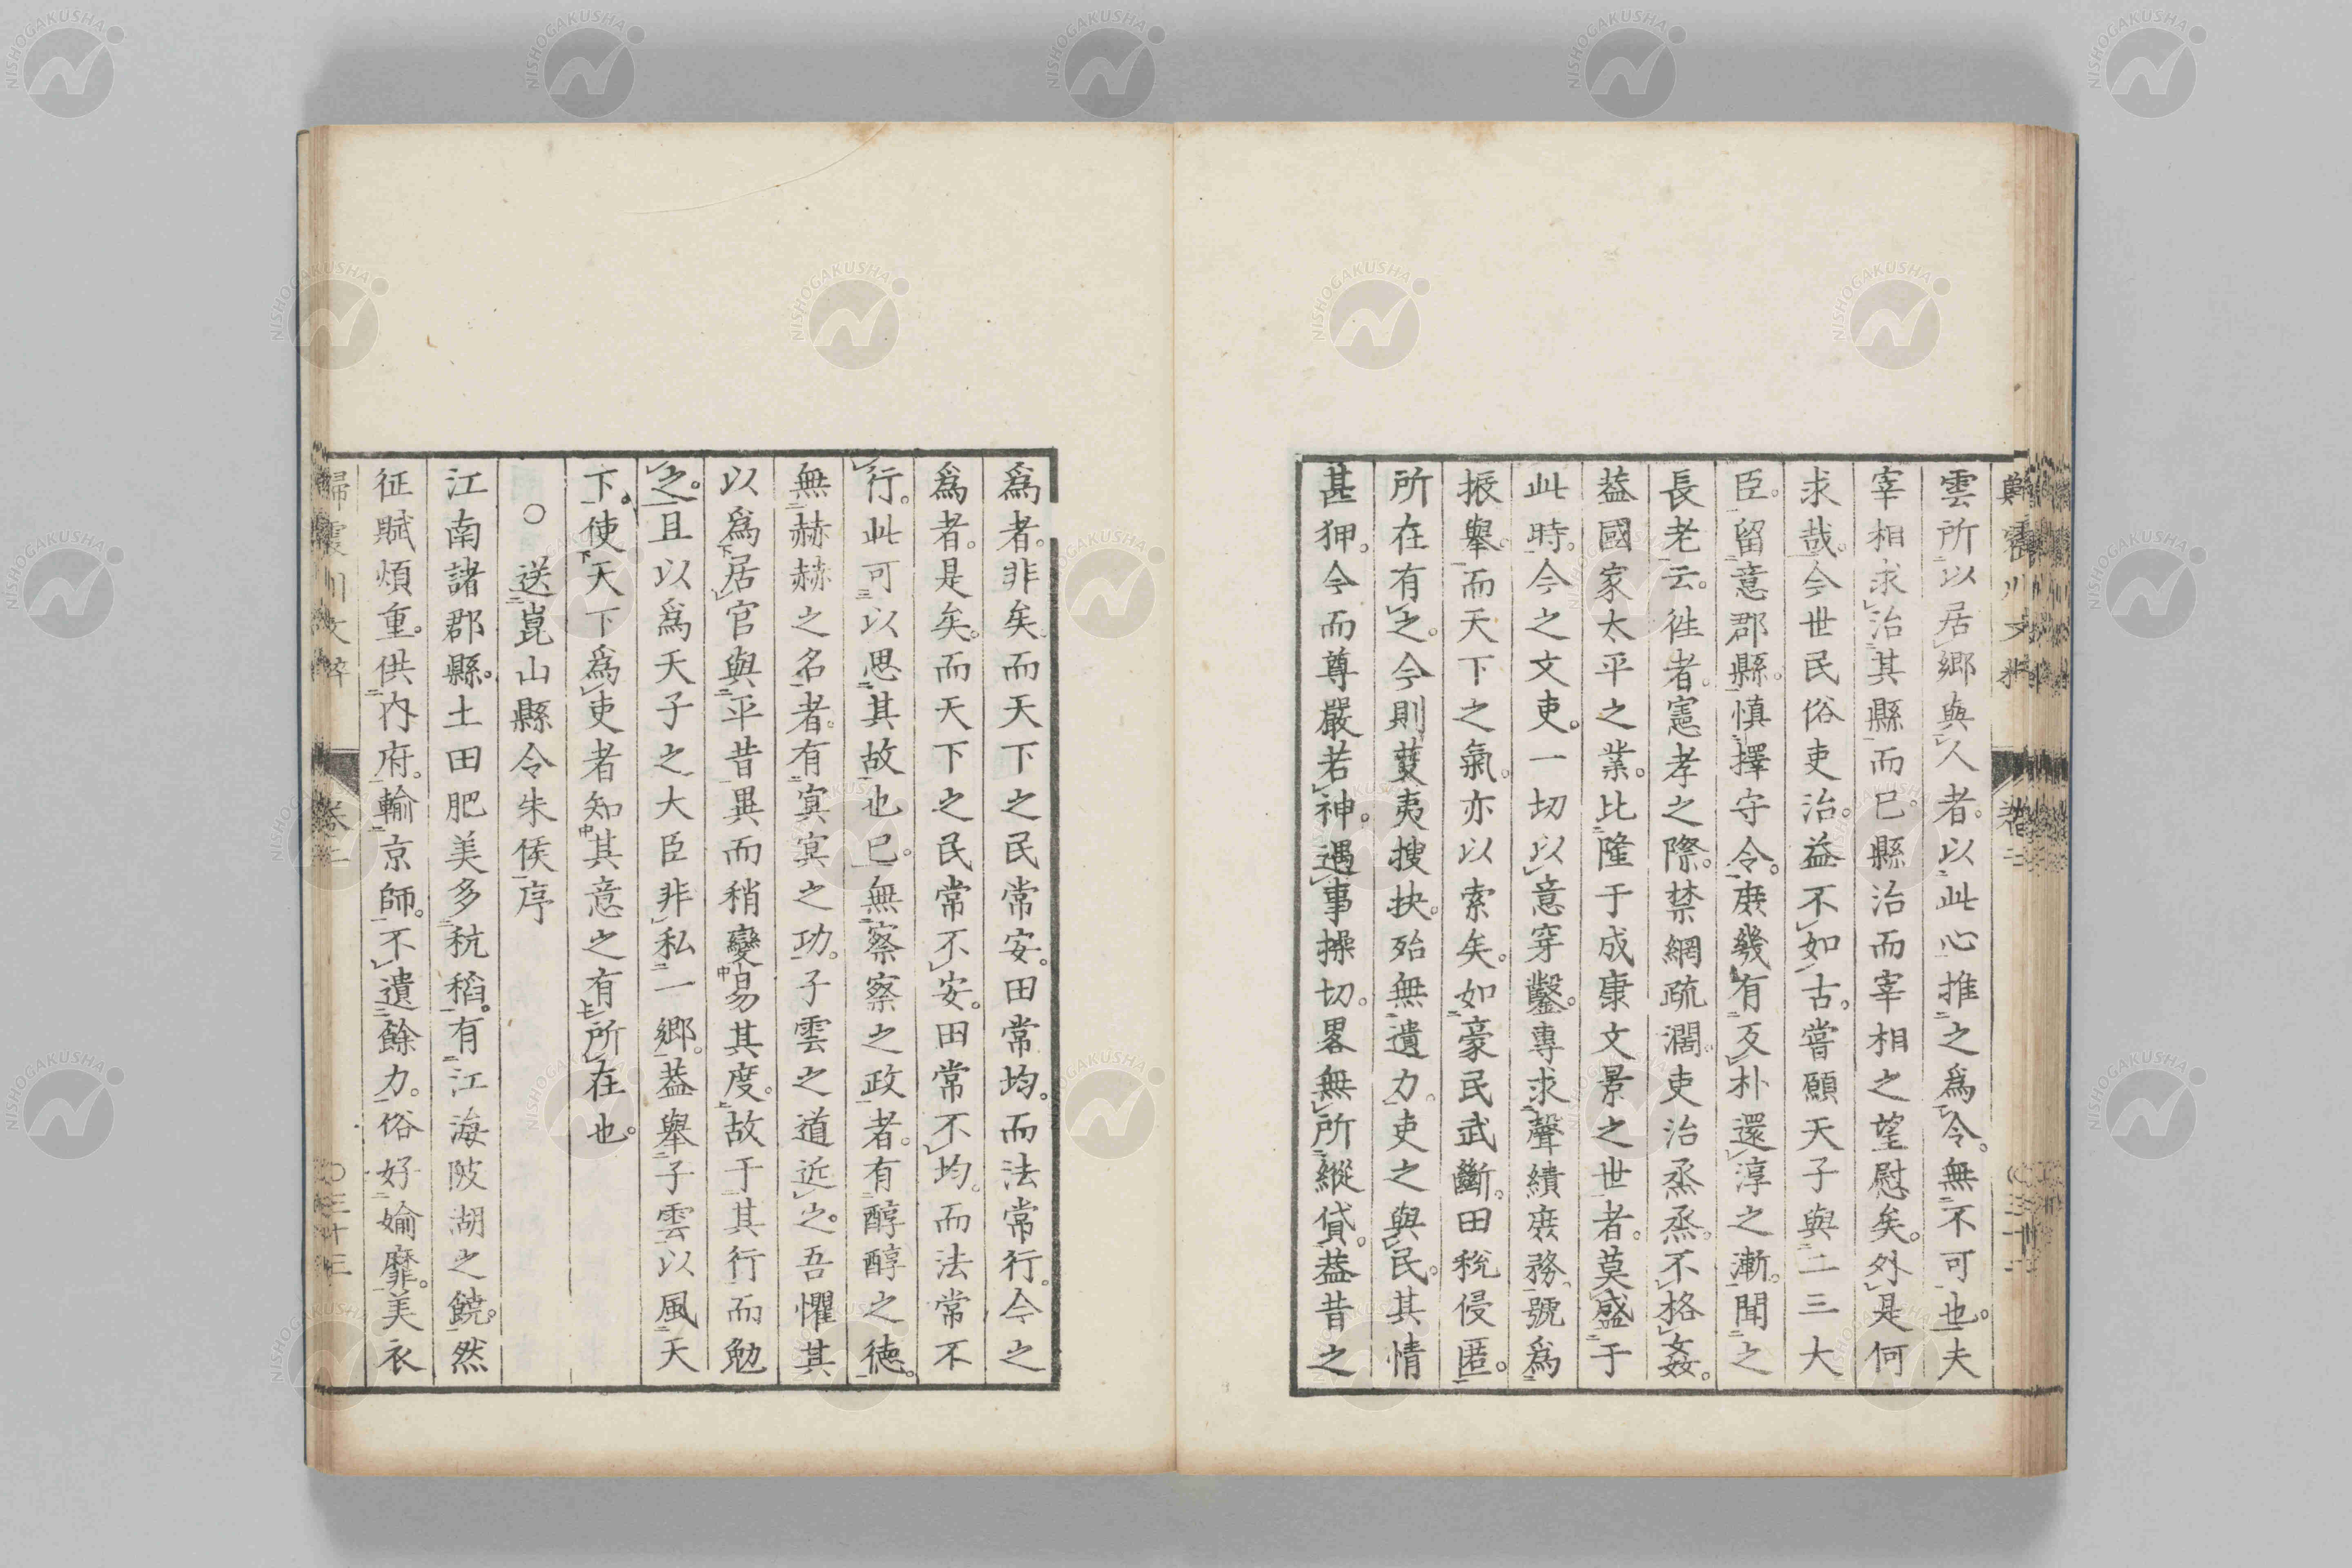 雲所以居鄉與人者。以此心推之爲令。無不可也。夫
宰相求治其縣而已。縣治而宰相之望慰矣。外是何
求哉。今世民俗吏治。益不如古。嘗願天子與二三大
臣。留意郡縣。慎擇守令。庶幾有反朴還淳之漸。聞之
長老云。徃者。憲孝之際。禁網疏濶。吏治烝烝。不格姦。
葢國家太平之業。比隆于成康文景之世者。莫盛于
此時。今之文吏。一切以意穿鑿。專求聲績庶務。號爲
振舉。而天下之氣。亦以索矣。如豪民武斷。田稅侵匿。
所在有之。今則芟夷搜抉。殆無遺力。吏之與民。其情
甚狎。今而尊嚴若神。遇事操切。畧無所縱貸。葢昔之
爲者。非矣。而天下之民常安。田常均。而法常行。今之
爲者。是矣。而天下之民常不安。田常不均。而法常不
行。此可以思其故也已。無察察之政者。有醇醇之德。
無赫赫之名者。有冥冥之功。子雲之道近之。吾懼其
以爲居官與平昔異而稍變易其度。故于其行而勉
之。且以爲天子之大臣非私一鄉。葢舉子雲以風天
下。使天下爲吏者知其意之有所在也。
○送崑山縣令朱侯序
江南諸郡縣。土田肥美多秔稻。有江海陂湖之饒。然
征賦煩重。供內府。輸京師。不遺餘力。俗好媮靡。美衣
歸震川文粹
卷二
○三十三
NISHOGAKUSHA